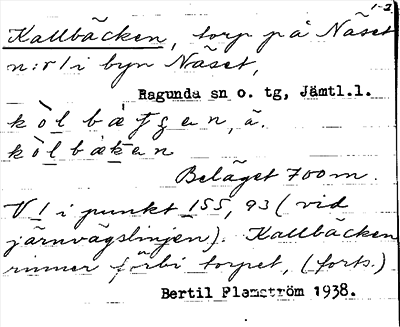 1-2
Kallbäcken, torp på Näset
n:r 1 i byn Näset,
Ragunda sn o. tg, Jämtl.l.
kòlbàƭʃen, ä.
kòlbäken
Beläget 700 m.
V 1 i punkt 155, 93 (vid
järnvägslinjen). Kallbäcken
rinner förbi torpet, (forts.)
Bertil Flemström 1938.